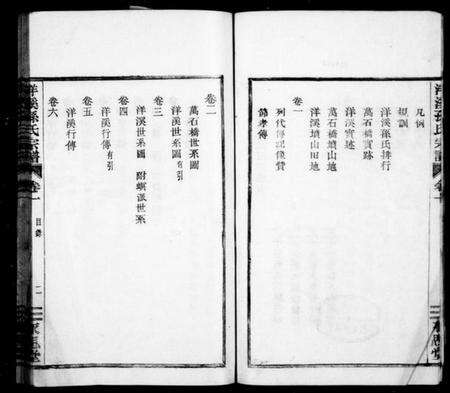 洋溪孫氏宗譜 卷一
凡例
規訓
洋溪孫氏排行
萬石橋實跡
洋溪實述
萬石橋墳山地
洋溪墳山田地
卷一
列代傳記像贊
卷二
萬石橋世系圖
卷三
洋溪世系圖
卷四
洋溪世系圖 附
世系
卷五
洋溪行傳
卷六
洋溪行傳
洋溪孫氏宗譜 卷一 目錄 二